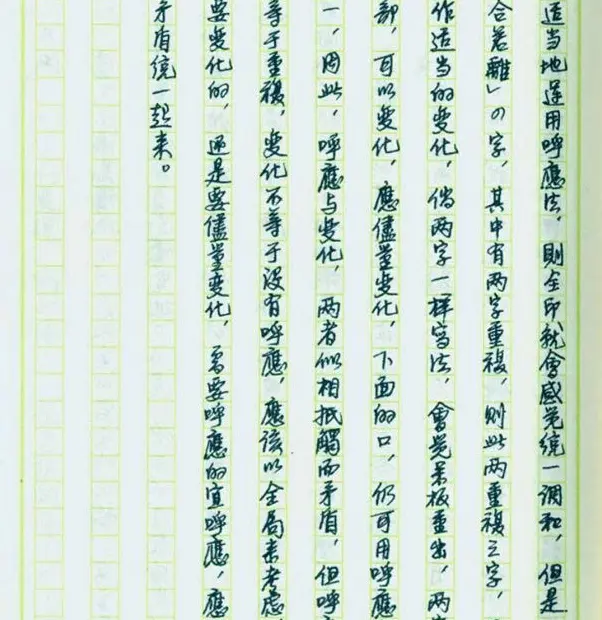 适当地运用呼應法，則全印就會感觉统一调和，但是
合若離」の字，其中有两字重複，則此两重複之字，
作适当的变化，倘两字一样写法，會觉呆板重出，两
部，可以变化，應儘量变化，下面的口，仍可用呼應
一，因此，呼應与变化，两者似相抵觸而矛盾，但呼
等于重複，变化不等于没有呼應，應该以全局来考虑
要变化的，还是要儘量变化，需要呼應的宜呼應，應
矛盾统一起来。